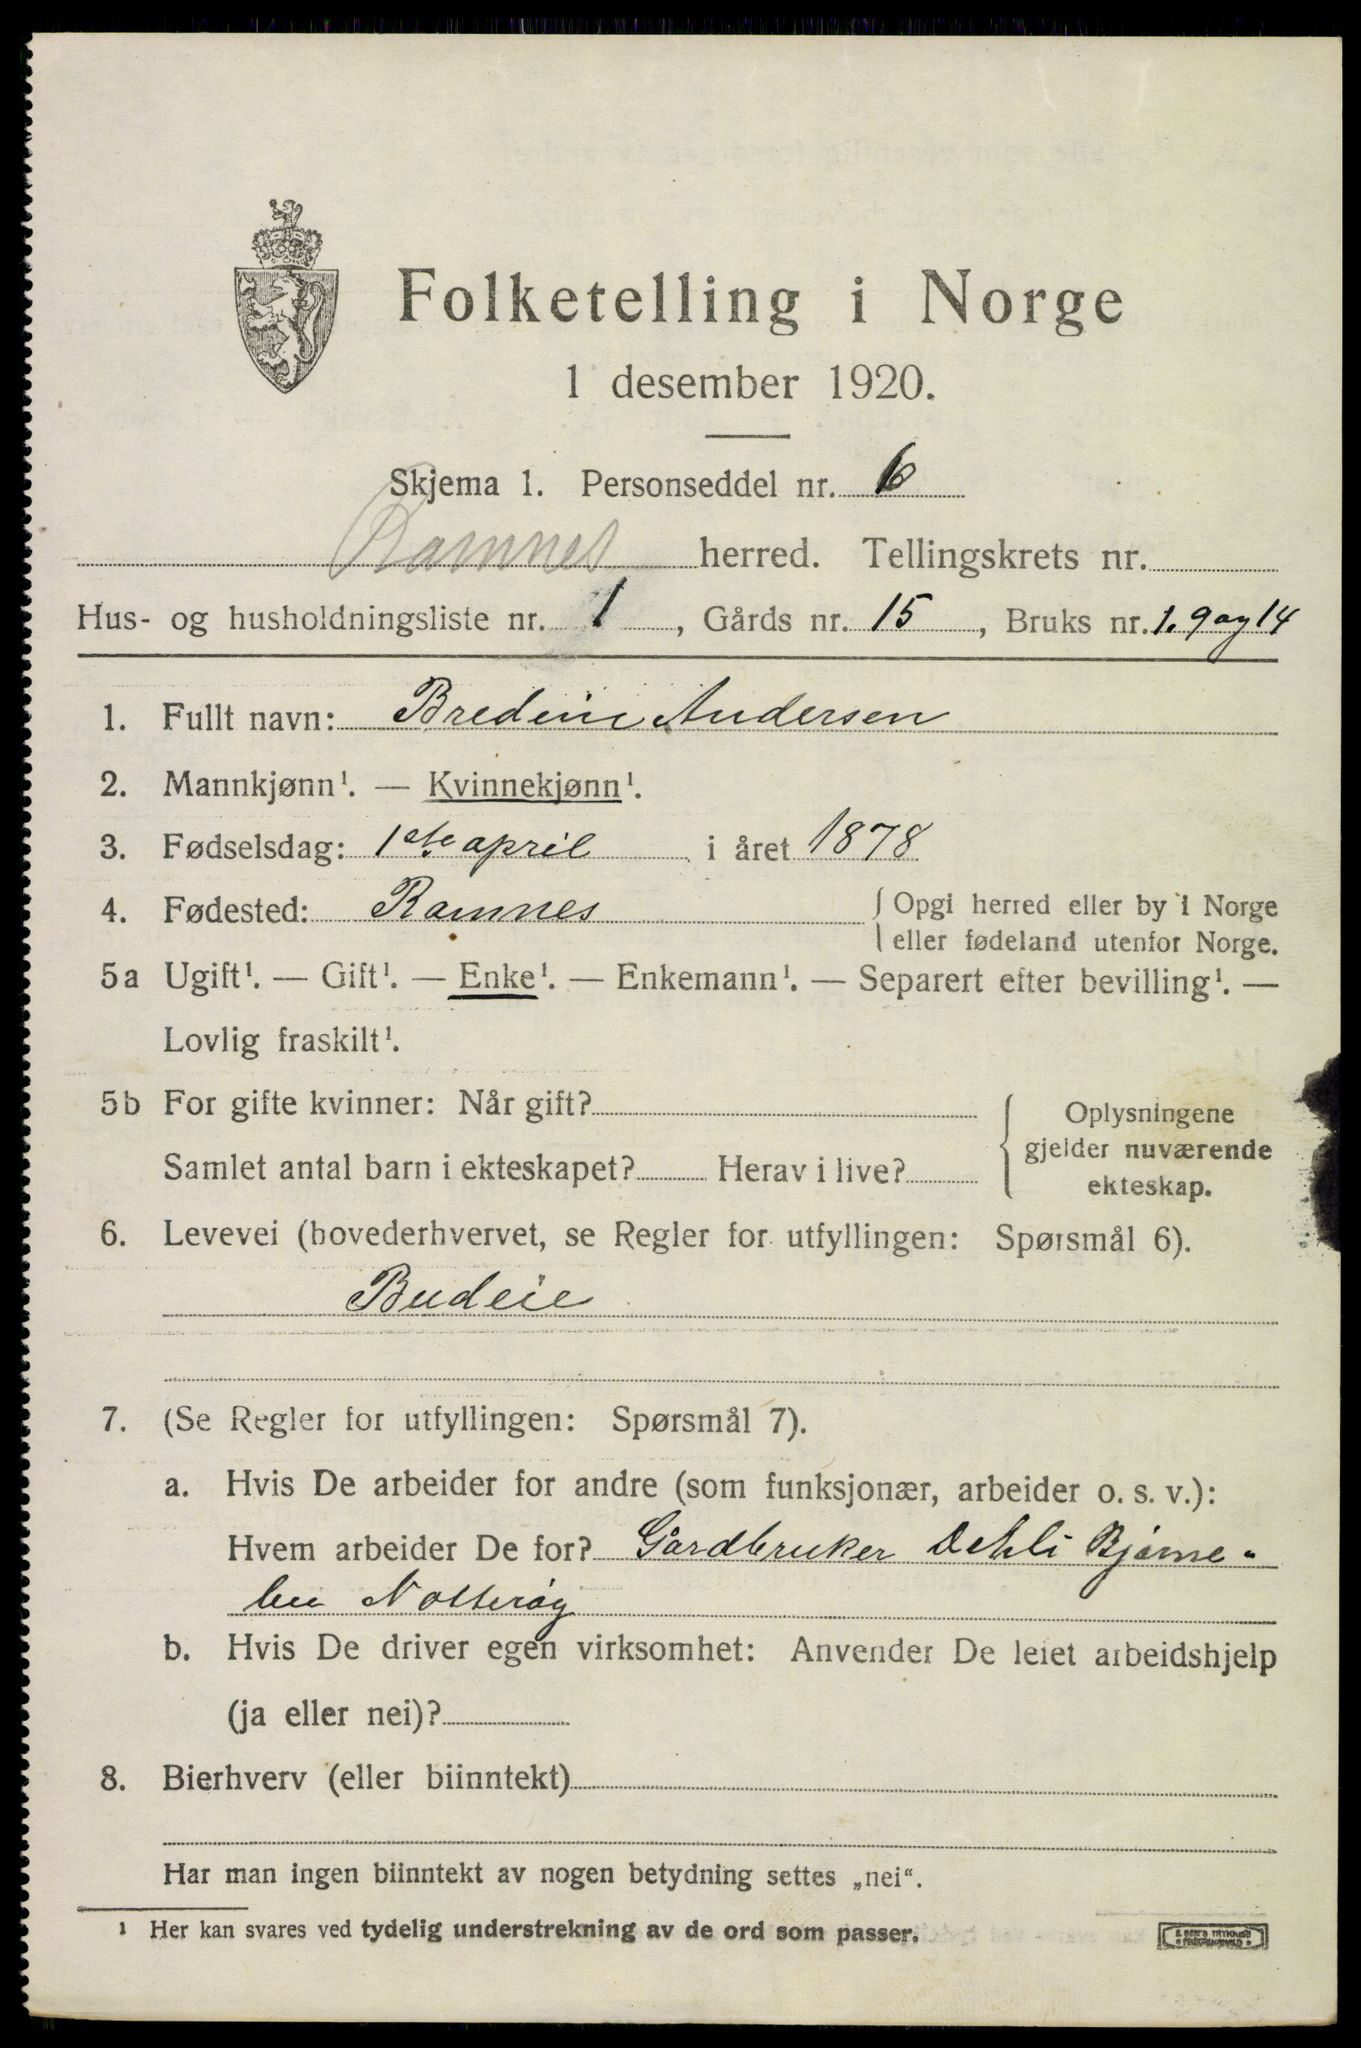 Folketelling i Norge
1 desember 1920.
Skjema 1. Personseddel nr. 6
Ramnes herred. Tellingskrets nr.
Hus- og husholdningsliste nr. 1, Gårds nr. 15, Bruks nr. 1. 9 og 14
1. Fullt navn: Bredine Andersen
2. Mannkjønn¹. — Kvinnekjønn¹.
3. Fødselsdag: 1ste april i året 1878
4. Fødested: Ramnes { Opgi herred eller by i Norge
eller fødeland utenfor Norge.
5a Ugift¹. — Gift¹. — Enke¹. — Enkemann¹. — Separert efter bevilling¹. —
Lovlig fraskilt¹.
5b For gifte kvinner: Når gift?
Samlet antal barn i ekteskapet? Herav i live?
{ Oplysningene
gjelder nuværende
ekteskap.
6. Levevei (hovederhvervet, se Regler for utfyllingen: Spørsmål 6).
Budeie
7. (Se Regler for utfyllingen: Spørsmål 7).
a. Hvis De arbeider for andre (som funksjonær, arbeider o. s. v.):
Hvem arbeider De for? Gårdbruker Dehli
b. Hvis De driver egen virksomhet: Anvender De leiet arbeidshjelp
(ja eller nei)?
8. Bierhverv (eller biinntekt)
Har man ingen biinntekt av nogen betydning settes „nei“.
¹ Her kan svares ved tydelig understrekning av de ord som passer.